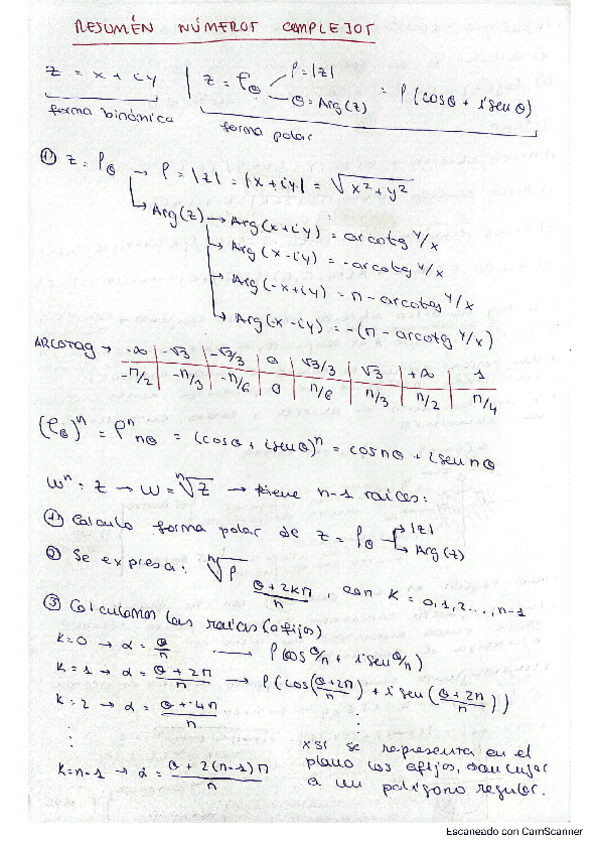 RESUMÉN NÚMEROS COMPLEJOS
z = x + iy | z = ρ_θ → ρ = |z| → θ = Arg(z) = ρ(cosθ + i senθ)
forma binómica
forma polar
① z = ρ_θ → ρ = |z| = |x + iy| = √(x² + y²)
Arg(z) → Arg(x+iy) = arcotg y/x
→ Arg(x-iy) = -arcotg y/x
→ Arg(-x+iy) = π - arcotg y/x
→ Arg(-x-iy) = -(π - arcotg y/x)
ARCOTAG → -∞ | -√3 | -√3/3 | 0 | √3/3 | √3 | +∞ | 1
-π/2 | -π/3 | -π/6 | 0 | π/6 | π/3 | π/2 | π/4
(ρ_θ)ⁿ = ρⁿ_nθ = (cosθ + i senθ)ⁿ = cos nθ + i sen nθ
wⁿ = z → w = ⁿ√z → tiene n-1 raices:
① Calculo forma polar de z = ρ_θ → |z| → Arg(z)
② Se expresa: ⁿ√ρ (θ + 2kπ)/n , con k = 0,1,2...,n-1
③ Calculamos las raices (afijos)
k=0 → α = θ/n → ρ(cos θ/n + i sen θ/n)
k=1 → α = (θ + 2π)/n → ρ(cos((θ+2π)/n) + i sen((θ+2π)/n))
k=2 → α = (θ + 4π)/n
k=n-1 → α = (θ + 2(n-1)π)/n
*si se representa en el
plano los afijos, dan lugar
a un polígono regular.
Escaneado con CamScanner